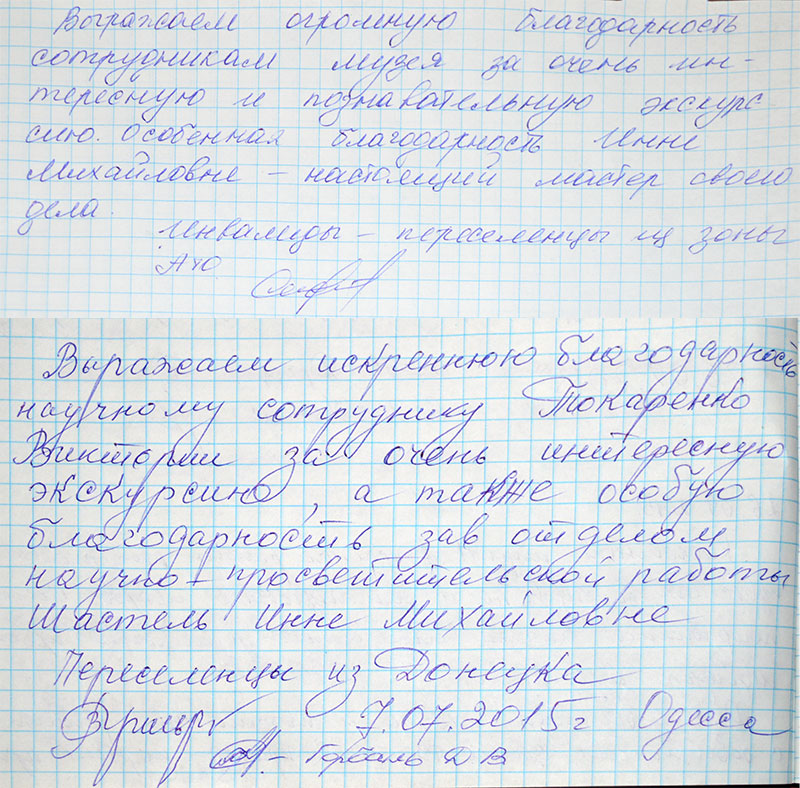 Выражаем огромную благодарность
сотрудникам музея за очень ин-
тересную и познавательную экскурс
сию. Особенная благодарность Инне
Михайловне – настоящий мастер своего
дела.
Инвалиды – переселенцы из зоны
АТО.
Выражаем искреннюю благодарность
научному сотруднику Токаренко
Виктории за очень интересную
экскурсию, а также особую
благодарность зав отделом
научно-просветительской работы
Шастель Инне Михайловне
Переселенцы из Донецка
7.07.2015г Одесса
– Горбаль Д В